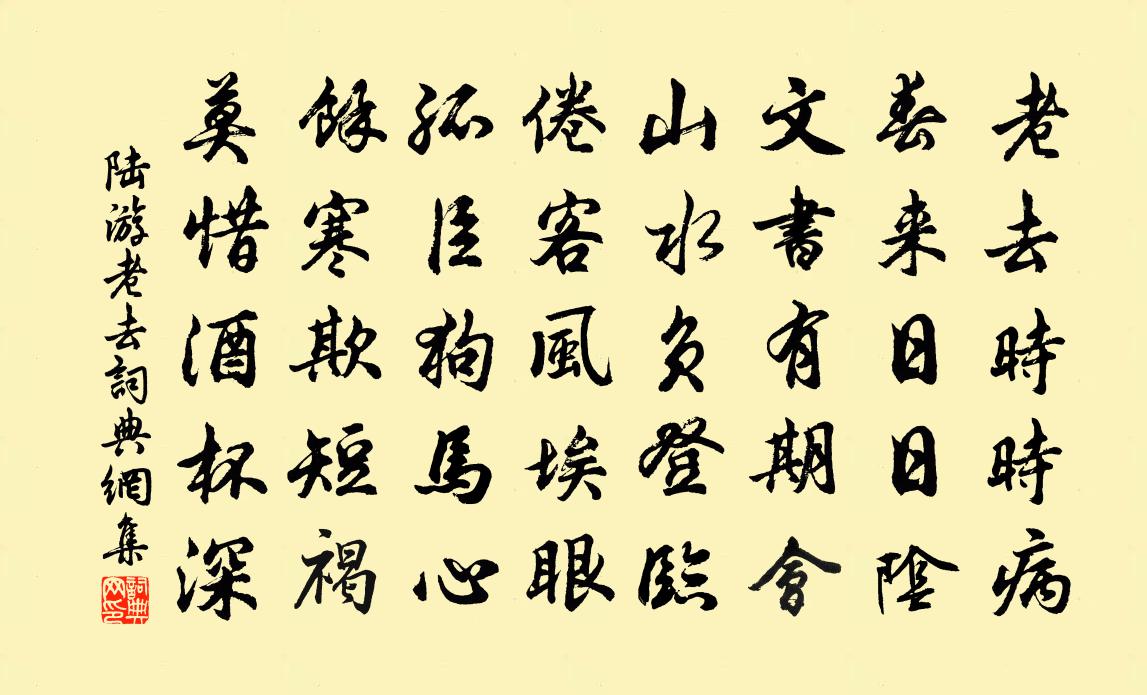 老去時時病
春来日日陰
文書有期會
山水負登臨
倦客風埃眼
孤臣狗馬心
餘寒欺短褐
莫惜酒杯深
陆游老去詞典網集
詞典网印